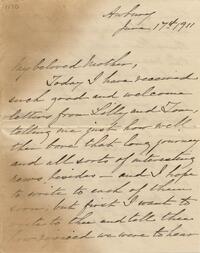 Asbury
June 17th 1911
My beloved Mother,
Today I have received
such good and welcome
letters from Lilly and Tom,
telling me just how well
thee bore that long journey
and all sorts of interesting
news besides - and I hope
to write to each of them
soon but first I want to
write to thee and tell thee
how rejoiced we were to hear